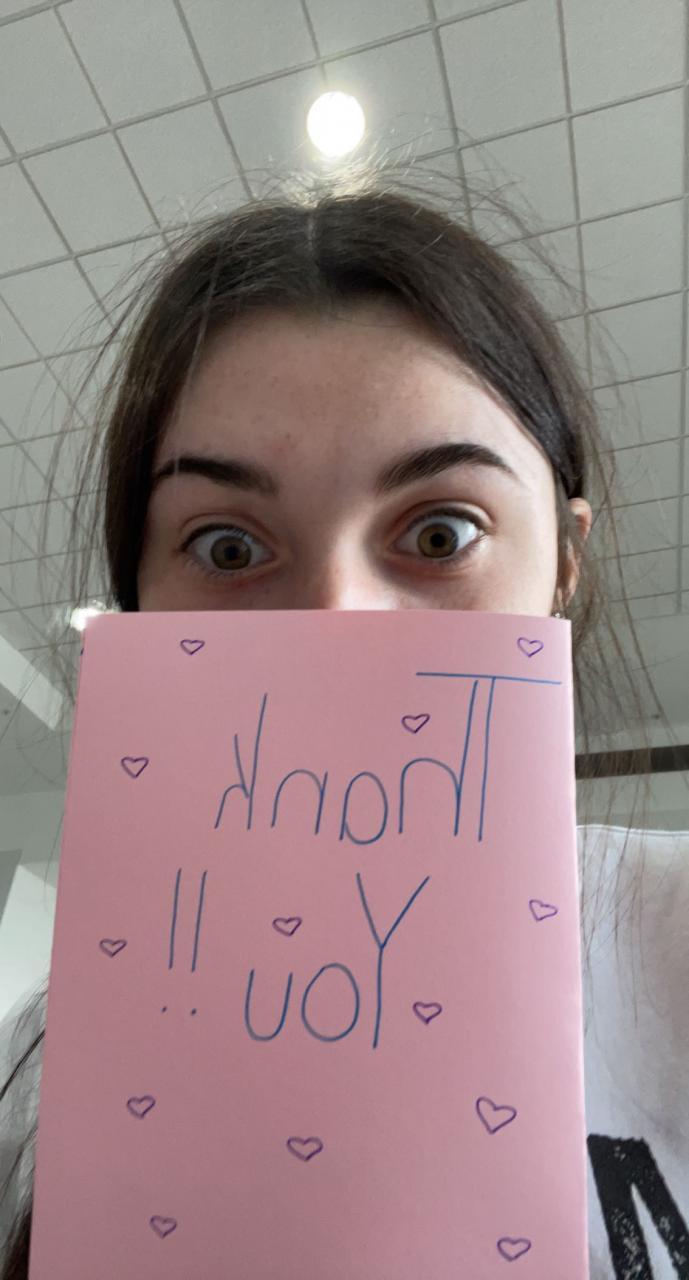 Thank
You !!